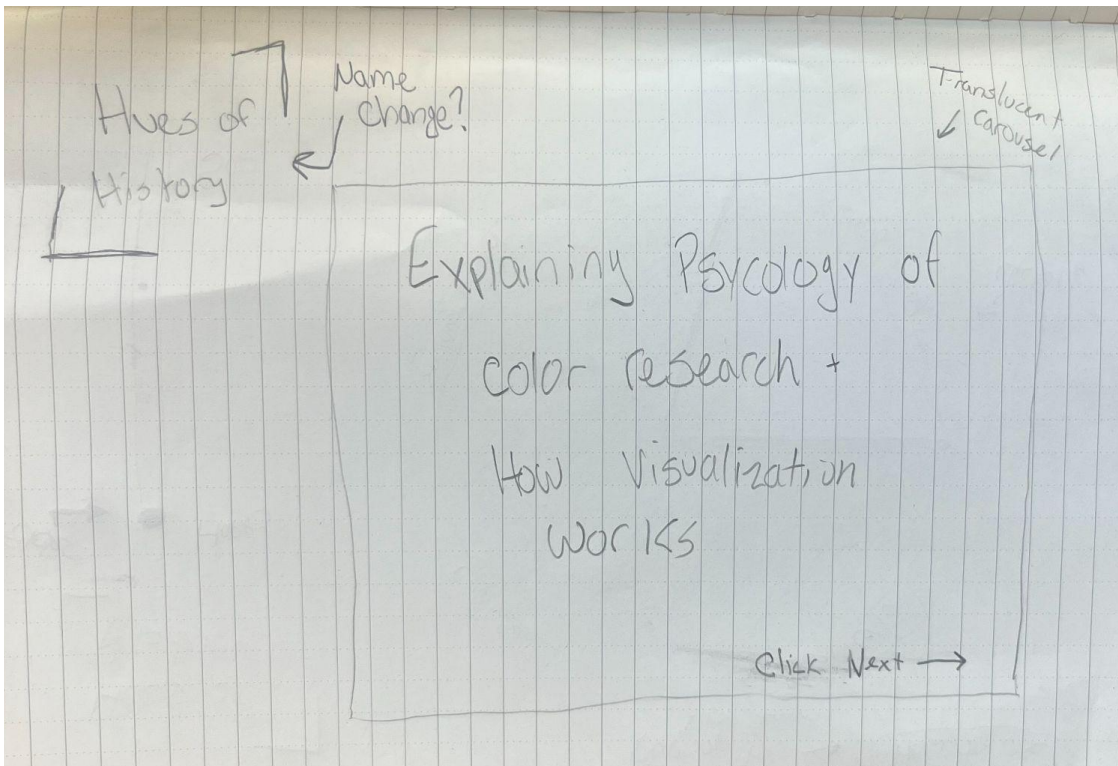 Hues of
History
Name
Change?
Translucent
Carousel
Explaining Psycology of
color research +
How Visualization
Works
Click Next →